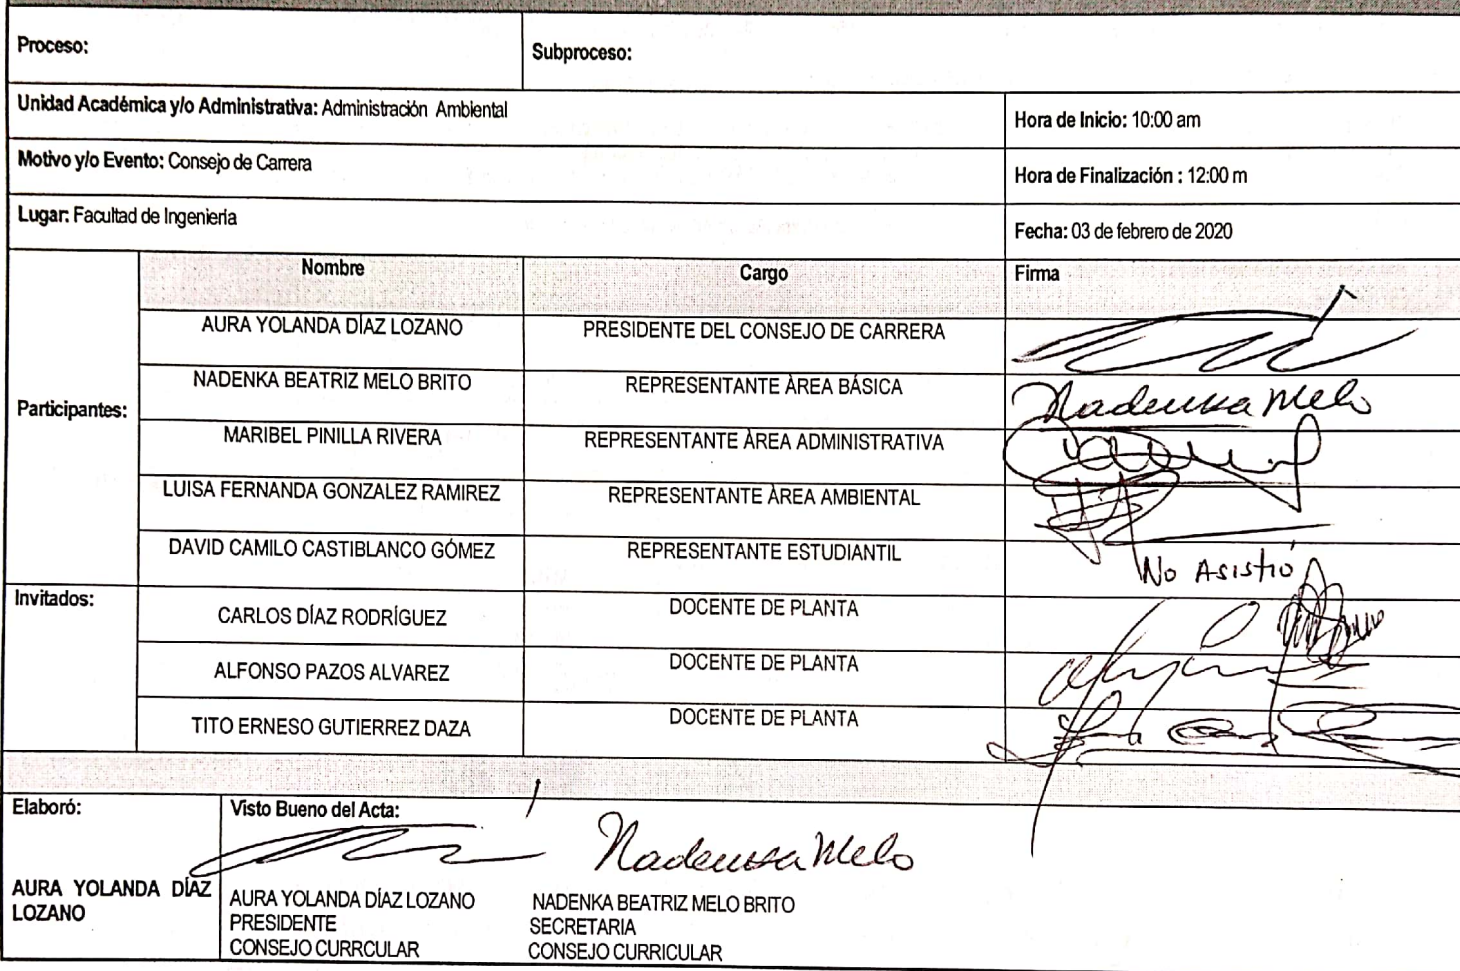 Proceso:
Subproceso:
Unidad Académica y/o Administrativa: Administración Ambiental
Hora de Inicio: 10:00 am
Motivo y/o Evento: Consejo de Carrera
Hora de Finalización : 12:00 m
Lugar: Facultad de Ingeniería
Fecha: 03 de febrero de 2020
Participantes:
Nombre
Cargo
Firma
AURA YOLANDA DÍAZ LOZANO
PRESIDENTE DEL CONSEJO DE CARRERA
NADENKA BEATRIZ MELO BRITO
REPRESENTANTE ÀREA BÁSICA
Nadenka Melo
MARIBEL PINILLA RIVERA
REPRESENTANTE ÀREA ADMINISTRATIVA
LUISA FERNANDA GONZALEZ RAMIREZ
REPRESENTANTE ÀREA AMBIENTAL
DAVID CAMILO CASTIBLANCO GÓMEZ
REPRESENTANTE ESTUDIANTIL
No Asistió
Invitados:
CARLOS DÍAZ RODRÍGUEZ
DOCENTE DE PLANTA
ALFONSO PAZOS ALVAREZ
DOCENTE DE PLANTA
TITO ERNESO GUTIERREZ DAZA
DOCENTE DE PLANTA
Elaboró:
AURA YOLANDA DÍAZ
LOZANO
Visto Bueno del Acta:
Nadenka Melo
AURA YOLANDA DÍAZ LOZANO
PRESIDENTE
CONSEJO CURRCULAR
NADENKA BEATRIZ MELO BRITO
SECRETARIA
CONSEJO CURRICULAR